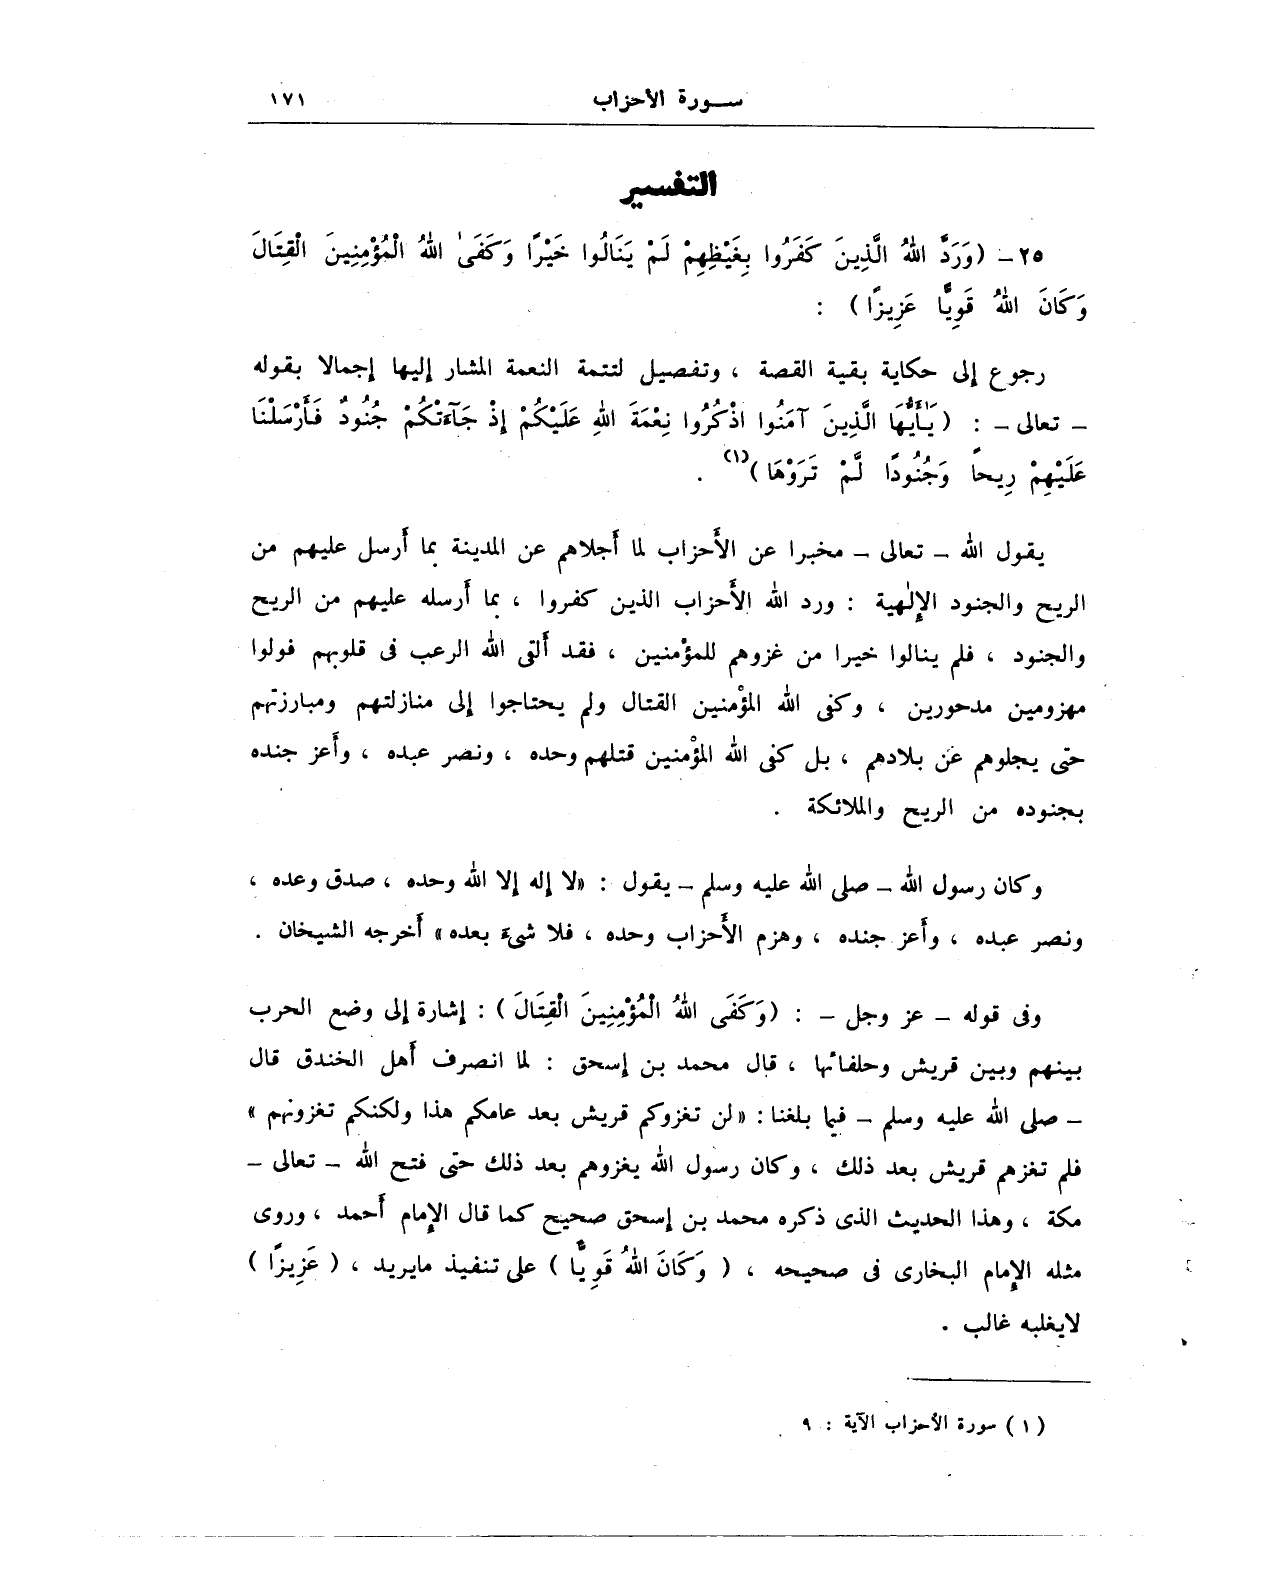 سورة الأحزاب ١٧١
التفسير
٢٥ – (وَرَدَّ اللهُ الَّذِينَ كَفَرُوا بِغَيْظِهِمْ لَمْ يَنَالُوا خَيْرًا وَكَفَىٰ اللهُ الْمُؤْمِنِينَ الْقِتَالَ
وَكَانَ اللهُ قَوِيًّا عَزِيزًا) :
رجوع إلى حكاية بقية القصة ، وتفصيل لتتمة النعمة المشار إليها إجمالا بقوله
– تعالى – : (يَـٰأَيُّهَا الَّذِينَ آمَنُوا اذْكُرُوا نِعْمَةَ اللهِ عَلَيْكُمْ إِذْ جَآءَتْكُمْ جُنُودٌ فَأَرْسَلْنَا
عَلَيْهِمْ رِيحاً وَجُنُودًا لَّمْ تَرَوْهَا)(١) .
يقول الله – تعالى – مخبرا عن الأَحزاب لما أَجلاهم عن المدينة بما أَرسل عليهم من
الريح والجنود الإِلٰهية : ورد الله الأَحزاب الذين كفروا ، بما أَرسله عليهم من الريح
والجنود ، فلم ينالوا خيرا من غزوهم للمؤمنين ، فقد أَلقى الله الرعب فى قلوبهم فولوا
مهزومين مدحورين ، وكفى الله المؤْمنين القتال ولم يحتاجوا إلى منازلتهم ومبارزتهم
حتى يجلوهم عن بلادهم ، بل كفى الله المؤْمنين قتلهم وحده ، ونصر عبده ، وأَعز جنده
بجنوده من الريح والملائكة .
وكان رسول الله – صلى الله عليه وسلم – يقول : «لا إله إلا الله وحده ، صدق وعده ،
ونصر عبده ، وأَعز جنده ، وهزم الأَحزاب وحده ، فلا شىءَ بعده» أَخرجه الشيخان .
وفى قوله – عز وجل – : (وَكَفَى اللهُ الْمُؤْمِنِينَ الْقِتَالَ) : إشارة إلى وضع الحرب
بينهم وبين قريش وحلفائها ، قال محمد بن إسحق : لما انصرف أَهل الخندق قال
– صلى الله عليه وسلم – فيما بلغنا : «لن تغزوكم قريش بعد عامكم هذا ولكنكم تغزونهم»
فلم تغزهم قريش بعد ذلك ، وكان رسول الله يغزوهم بعد ذلك حتى فتح الله – تعالى –
مكة ، وهذا الحديث الذى ذكره محمد بن إسحق صحيح كما قال الإمام أَحمد ، وروى
مثله الإِمام البخارى فى صحيحه ، ( وَكَانَ اللهُ قَوِيًّا ) على تنفيذ مايريد ، ( عَزِيزًا )
لايغلبه غالب .
(١) سورة الأحزاب الآية : ٩